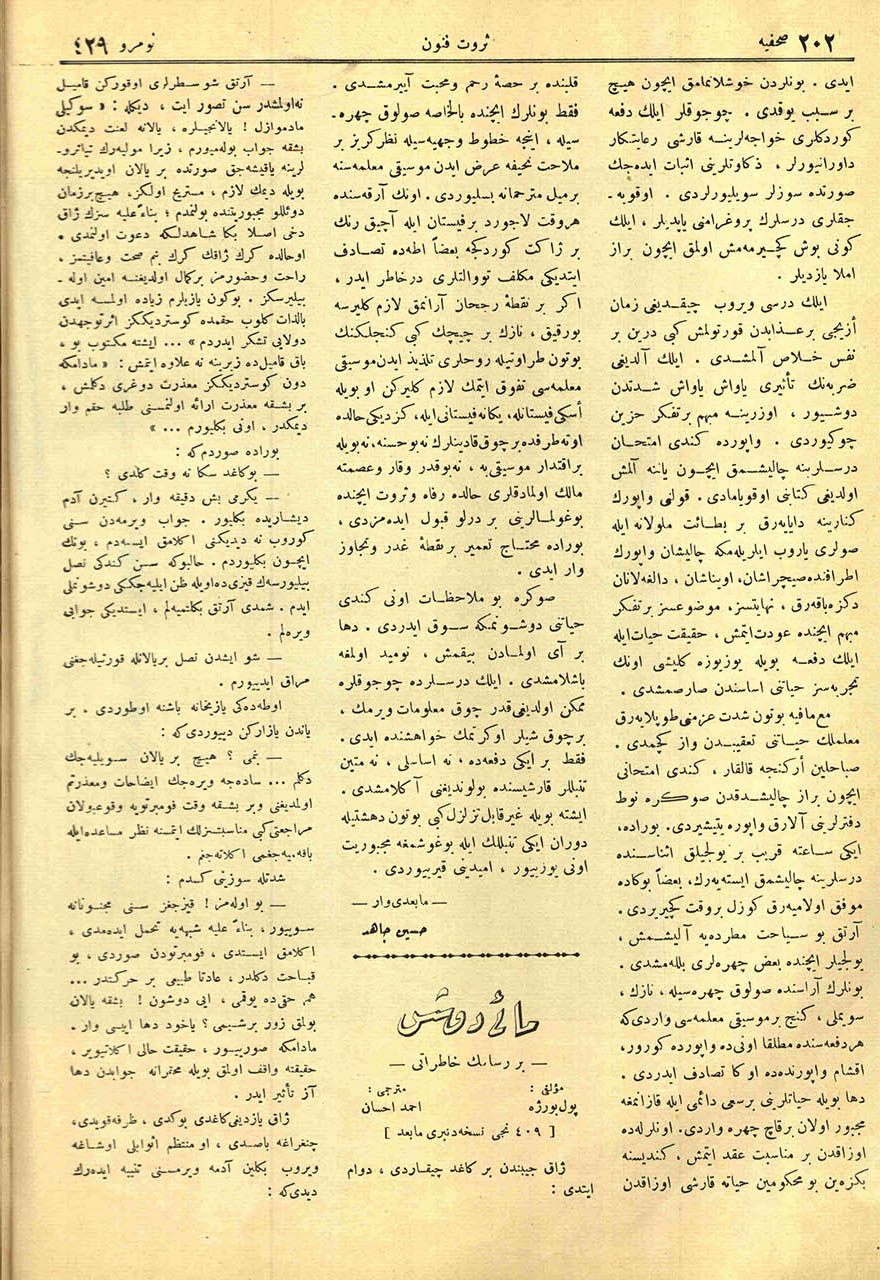 صحفیه ٢٠٢
ثروت فنون
نومرو ٤٢٩
ایدی . بونلردن خوشلانمامق ایچون هیچ
بر سبب یوقدی . چوجوقلر ایلك دفعه
كوردكلری خواجه‌لرینه قارشی رعایتكار
داورانیورلر ، ذكاوتلرینی اثبات ایده‌جك
صورتده سوزلر سویلیورلردی . اوقویه‌ـ
جقلری درسلرك پروغرامنی یاپدیلر ، ایلك
كونی بوش كچیرمه‌مش اولمق ایچون براز
املا یازدیلر
ایلك درسی ویروب چیقدیغی زمان
أزیجی بر عذابدن قورتولمش كبی درین بر
نفس خلاص آلمشدی . ایلك آلدیغی
ضربه‌نك تأثیری یاواش یاواش شدتدن
دوشیور ، اوزرینه مبهم بر تفكر حزین
چوكیوردی . واپورده كندی امتحان
درسلرینه چالیشمق ایچون یاننه آلمش
اولدیغی كتابنی اوقویامادی . قولنی واپورك
كنارینه دایایه‌رق بر بطائت ملولانه ایله
صولری یاروب ایلریله‌مكه چالیشان واپورك
اطرافنده صیچراشان، اویناشان ، دالغه‌لانان
دكزه باقه‌رق ، نهایتسز، موضوعسز بر تفكر
مبهم ایچنده عودت ایتمش ، حقیقت حیات ایله
ایلك دفعه بویله یوزیوزه كلیشی اونك
تجربه‌سز حیاتنی اساسندن صارصمشدی .
مع‌مافیه بوتون شدت عزمنی طوپلایه‌رق
معلملك حیاتنی تعقیبدن واز كچمدی .
صباحلین أركنجه قالقار ، كندی امتحانی
ایچون براز چالیشدقدن صوكره نوط
دفترلرینی آلارق واپوره یتیشیردی . بوراده،
ایكی ساعته قریب بر یولجیلق اثناسنده
درسلرینه چالیشمق ایسته‌یه‌رك، بعضاً بوكاده
موفق اولامیه‌رق كوزل بر وقت كچیریردی .
آرتق بو سیاحت مطرده‌یه آلیشمش ،
یولجیلر ایچنده بعض چهره‌لری بللمشدی .
بونلرك آراسنده صولوق چهره‌سیله ، نازك ،
سویملی ، كنج بر موسیقی معلمه‌سی واردی كه
هر دفعه‌سنده مطلقا اونی ده واپورده كورور،
اقشام واپورنده ده اوكا تصادف ایدردی .
دها بویله حیاتلرینی بر سعی دائمی ایله قازانمغه
مجبور اولان برقاچ چهره واردی . اونلرله ده
اوزاقدن بر مناسبت عقد ایتمش ، كندیسنه
بكزه‌ین بو محكومین حیاته قارشی اوزاقدن
قلبنده بر حصهٔ رحم و محبت آییرمشدی .
فقط بونلرك ایچنده بالخاصه صولوق چهره‌ـ
سیله ، اینجه خطوط وجهیه‌سیله نظركریز بر
ملاحت نحیفه عرض ایدن موسیقی معلمه‌سنه
بر میل مترحمانه بسلیوردی . اونك آرقه‌سنده
هر وقت لاجورد بر فیستان ایله آچیق رنك
بر ژاكت كوردكجه بعضاً اطه‌ده تصادف
ایتدیكی مكلف تووالتلری درخاطر ایدر ،
اكر بر نقطهٔ رجحان آرانمق لازم كلیرسه
بو رقیق ، نازك بر چیچك كبی كنجلكنك
بوتون طراوتیله روحلری تلذیذ ایدن موسیقی
معلمه‌سی تفوق ایتمك لازم كلیركن او بویله
أسكی فیستانله، یكانه فیستانی ایله، كزدیكی حالده
اوته طرفده برچوق قادینلرك نه بو حسنه، نه بویله
بر اقتدار موسیقی‌یه ، نه بوقدر وقار و عصمته
مالك اولمادقلری حالده رفاه و ثروت ایچنده
بوغولمالرینی بر درلو قبول ایده‌مزدی ،
بوراده محتاج تعمیر بر نقطهٔ غدر و تجاوز
وار ایدی .
صوكره بو ملاحظات اونی كندی
حیاتنی دوشونمكه سوق ایدردی . دها
بر آی اولمادن بیقمش ، نومید اولمغه
باشلامشدی . ایلك درسلرده چوجوقلره
ممكن اولدیغی قدر چوق معلومات ویرمك ،
برچوق شیلر اوكرتمك خواهشنده ایدی .
فقط بر ایكی دفعه‌ده ، نه اساسلی ، نه متین
تنبللر قارشیسنده بولوندیغنی آكلامشدی .
ایشته بویله غیر قابل تزلزل كبی بوتون دهشتیله
دوران ایكی تنبللك ایله بوغوشمغه مجبوریت
اونی یوزییور ، امیدینی قیریوردی .
— مابعدی وار —
حسین جاهد
مائی دوش
— بر رسامك خاطراتی —
مؤلفی : مترجمی :
پول بورژه احمد احسان
[ ٤٠٩ نجی نسخه‌دنبری مابعد ]
ژاق جیبندن بر كاغد چیقاردی ، دوام
ایتدی :
— آرتق شو سطرلری اوقوركن قامیل
نه اولمشدر سن تصور ایت ، دیكله : « سوكیلی
مادموازل ! یالانجیلره ، یالانه لعنت دیمكدن
بشقه جواب بوله‌میورم ، زیرا مولیه‌رك تیاترو‌ـ
لرینه یاقیشه‌جق صورتده بر یالان اویدیریلنجه
بویله دیمك لازم ، مستریح اولكز، هیچ بر زمان
دوئللو مجبوریتنده بولنمدم ؛ بناءً علیه سزك ژاق
دخی اصلا بكا شاهدلكه دعوت اولنمدی .
او حالده كرك ژاقك كرك بنم صحت و عافیتمز ،
راحت و حضورمز بركمال اولدیغنه امین اوله‌ـ
بیلیرسكز . بوكون یازیلرم زیاده اولمسه ایدی
بالذات كلوب حقمده كوستردیككز اثر توجهدن
دولایی تشكر ایدردم » ... ایشته مكتوب بو ،
باق قامیل ده زیرینه نه علاوه ایتمش : « مادامكه
دون كوستردیككز معذرت دوغری دكلمش ،
بر بشقه معذرت ارائه اولنمسنی طلبه حقم وار
دیمكدر ، اونی بكلیورم ... »
بوراده صوردم كه :
— بو كاغد سكا نه وقت كلدی ؟
— یكرمی بش دقیقه وار ، كتیرن آدم
دیشاریده بكلیور . جواب ویرمه‌دن سنی
كوروب نه دیدیكنی آكلامق ایسته‌دم ، بونك
ایچون بكلیوردم . حالبوكه سن كندكی نصل
بیلیرسه‌ك قیزی ده اویله ظن ایلیه‌جككی دوشونملی
ایدم . شمدی آرتق بكلتمیه‌لم ، ایستدیكی جوابی
ویره‌لم .
— شو ایشدن نصل بر یالانله قورتیله‌جغنی
مراق ایدییورم .
اوطه‌ده‌كی یازیخانه باشنه اوطوردی . بر
یاندن یازاركن دییوردی كه :
— بنمی ؟ هیچ بر یالان سویلیه‌جك
دكلم ... ساده‌جه ویره‌جك ایضاحات و معذرتم
اولمدیغنی و بر بشقه وقت فومبرتویه وقوعبولان
مراجعتی كبی مناسبتسزلك ایتمنه نظر مساعده ایله
باقه‌میه‌جغمی اكلاته‌جغم .
شدتله سوزینی كسدم :
— بو اوله‌مز ! قیزجغز سنی مجنونانه
سویور ، بناءً علیه شبهه‌یه تحمل ایده‌مدی ،
اكلامق ایستدی ، فومبرتودن صوردی ، بو
قباحت دكلدر ، عادتا طبیعی بر حركتدر ...
هم حق ده یوقمی ، ایی دوشون ! بشقه یالان
بولمق زور بر شیمی ؟ یاخود دها اییسی وار .
مادامكه صورییور ، حقیقت حالی اكلاتیویر ،
حقیقته واقف اولمق بویله محقرانه جوابدن دها
آز تأثیر ایدر .
ژاق یازدیغی كاغدی بوكدی ، ظرفه قویدی،
چنغراغه باصدی ، او منتظم اثوابلی اوشاغه
ویروب بكلین آدمه ویرمسنی تنبیه ایده‌رك
دیدی كه :